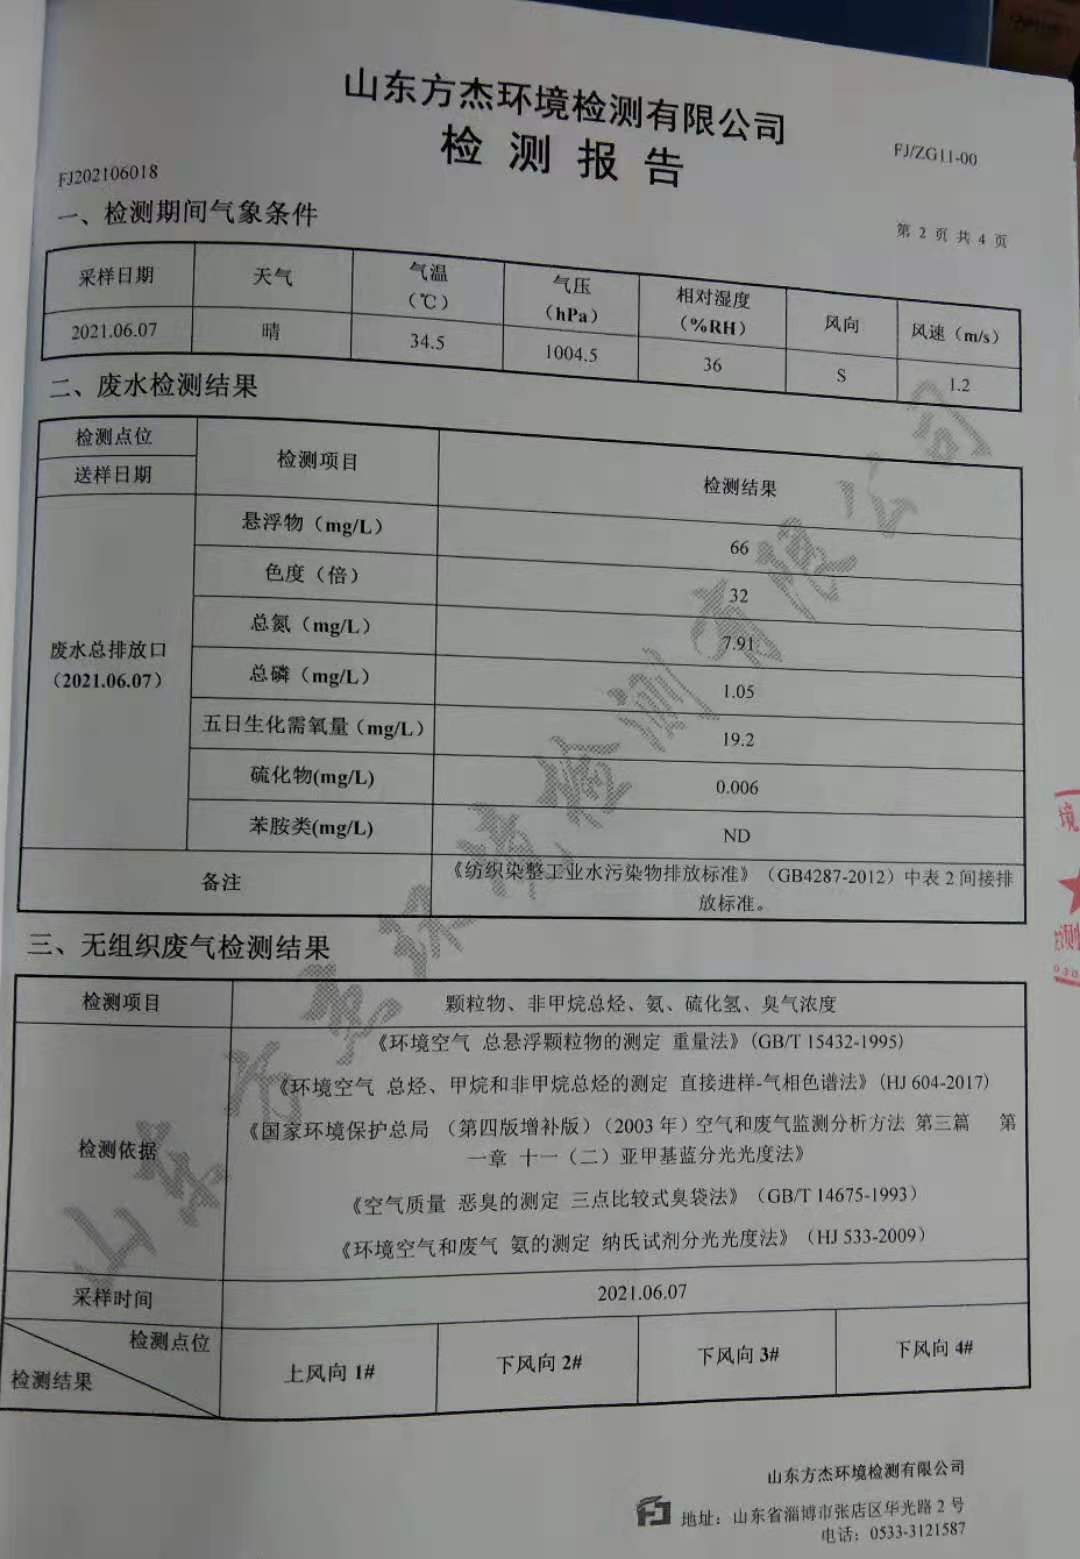 山东方杰环境检测有限公司
检测报告
FJ/ZG11-00
FJ202106018
第 2 页 共 4 页
一、检测期间气象条件
采样日期 天气 气温（℃） 气压（hPa） 相对湿度（%RH） 风向 风速（m/s）
2021.06.07 晴 34.5 1004.5 36 S 1.2
二、废水检测结果
检测点位 检测项目 检测结果
送样日期
废水总排放口
（2021.06.07）
悬浮物（mg/L） 66
色度（倍） 32
总氮（mg/L） 7.91
总磷（mg/L） 1.05
五日生化需氧量（mg/L） 19.2
硫化物(mg/L) 0.006
苯胺类(mg/L) ND
备注 《纺织染整工业水污染物排放标准》（GB4287-2012）中表 2 间接排
放标准。
三、无组织废气检测结果
检测项目 颗粒物、非甲烷总烃、氨、硫化氢、臭气浓度
检测依据
《环境空气 总悬浮颗粒物的测定 重量法》(GB/T 15432-1995)
《环境空气 总烃、甲烷和非甲烷总烃的测定 直接进样-气相色谱法》(HJ 604-2017)
《国家环境保护总局 （第四版增补版）（2003 年）空气和废气监测分析方法 第三篇 第
一章 十一（二）亚甲基蓝分光光度法》
《空气质量 恶臭的测定 三点比较式臭袋法》（GB/T 14675-1993）
《环境空气和废气 氨的测定 纳氏试剂分光光度法》（HJ 533-2009）
采样时间 2021.06.07
检测点位
检测结果
上风向 1# 下风向 2# 下风向 3# 下风向 4#
山东方杰环境检测有限公司
山东方杰环境检测有限公司
地址：山东省淄博市张店区华光路 2 号
电话：0533-3121587
境